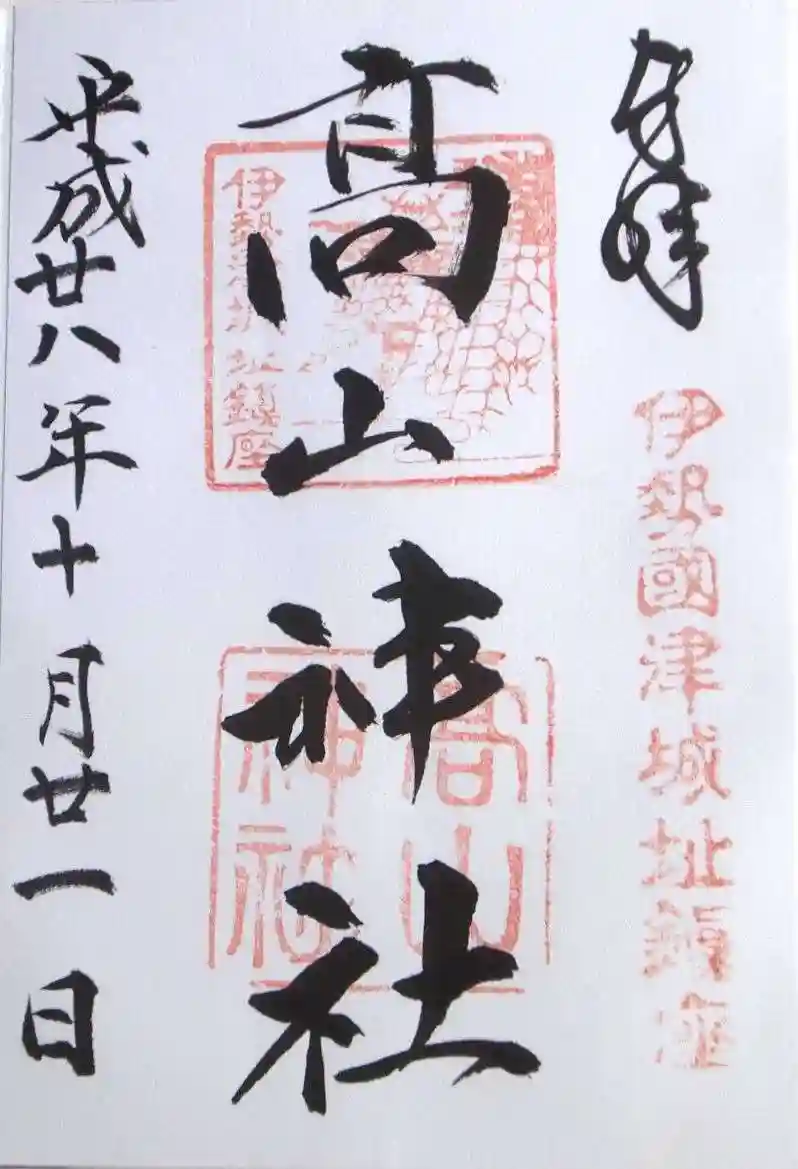 奉拝
伊勢國津城址鎮座
髙山神社
伊勢津城址鎮座
高山
神社
平成廿八年十月廿一日